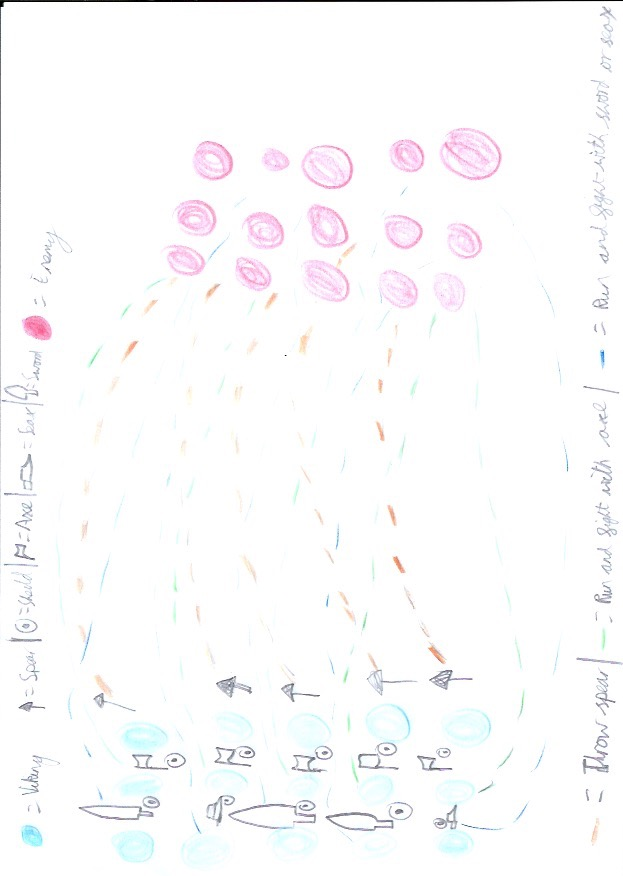 = Viking ↑ = Spear | = Sheild | = Axe | = Seax | = Sword = Enemy
= Throw spear | = Run and fight with axe | = Run and fight with sword or seax